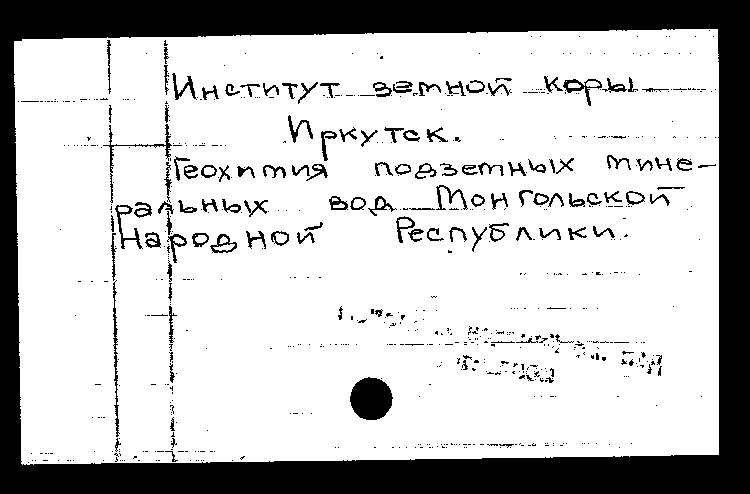 Институт земной коры.
Иркутск.
Геохимия подземных мине-
ральных вод Монгольской
Народной Республики.